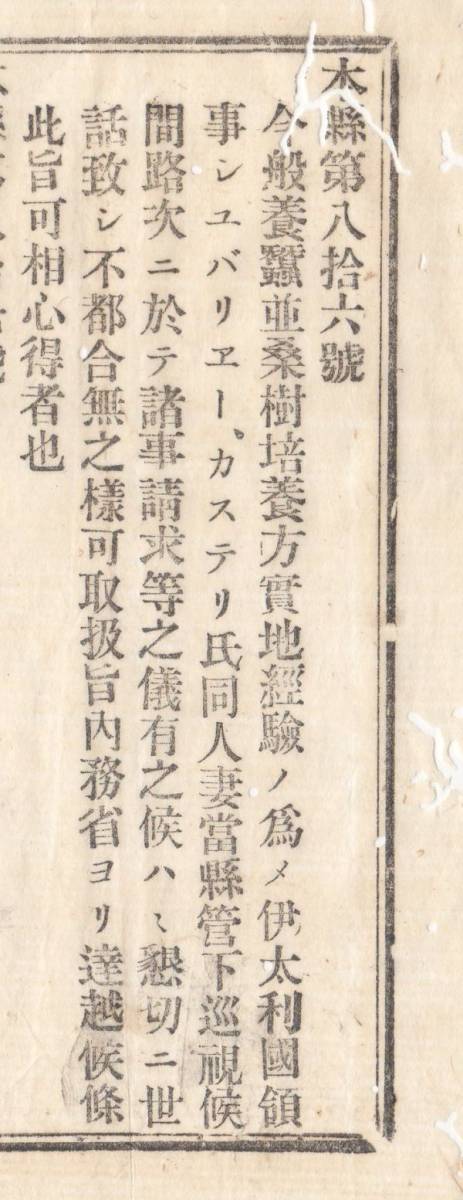 本縣第八拾六號
今般養蠶並桑樹培養方實地經驗ノ爲メ伊太利國領
事シユバリヱー、カステリ氏同人妻當縣管下巡視候
間路次ニ於テ諸事請求等之儀有之候ハヽ懇切ニ世
話致シ不都合無之樣可取扱旨內務省ヨリ達越候條
此旨可相心得者也